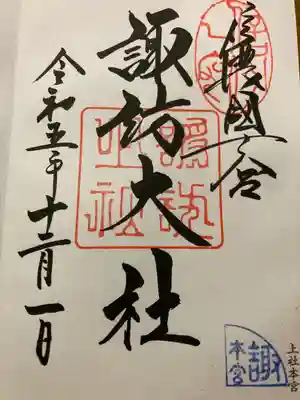 信濃國一宮
諏訪大社
令和五年十二月一日
上社本宮
諏
本宮